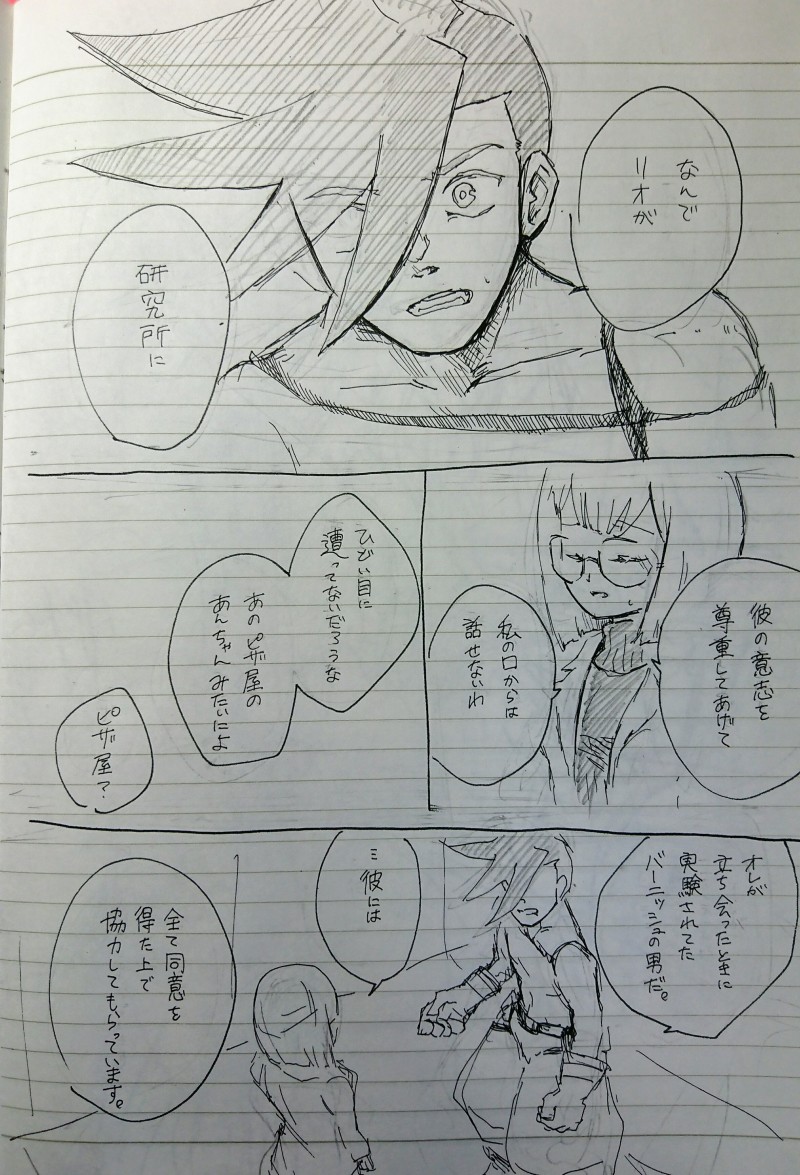 なんで
リオが
研究所に
彼の意志を
尊重してあげて
私の口からは
話せないわ
ひどい目に
遭ってないだろうな
あのピザ屋の
あんちゃんみたいによ
ピザ屋?
オレが
立ち会ったときに
実験されてた
バーニッシュの男だ。
…彼には
全て同意を
得た上で
協力してもらっています。